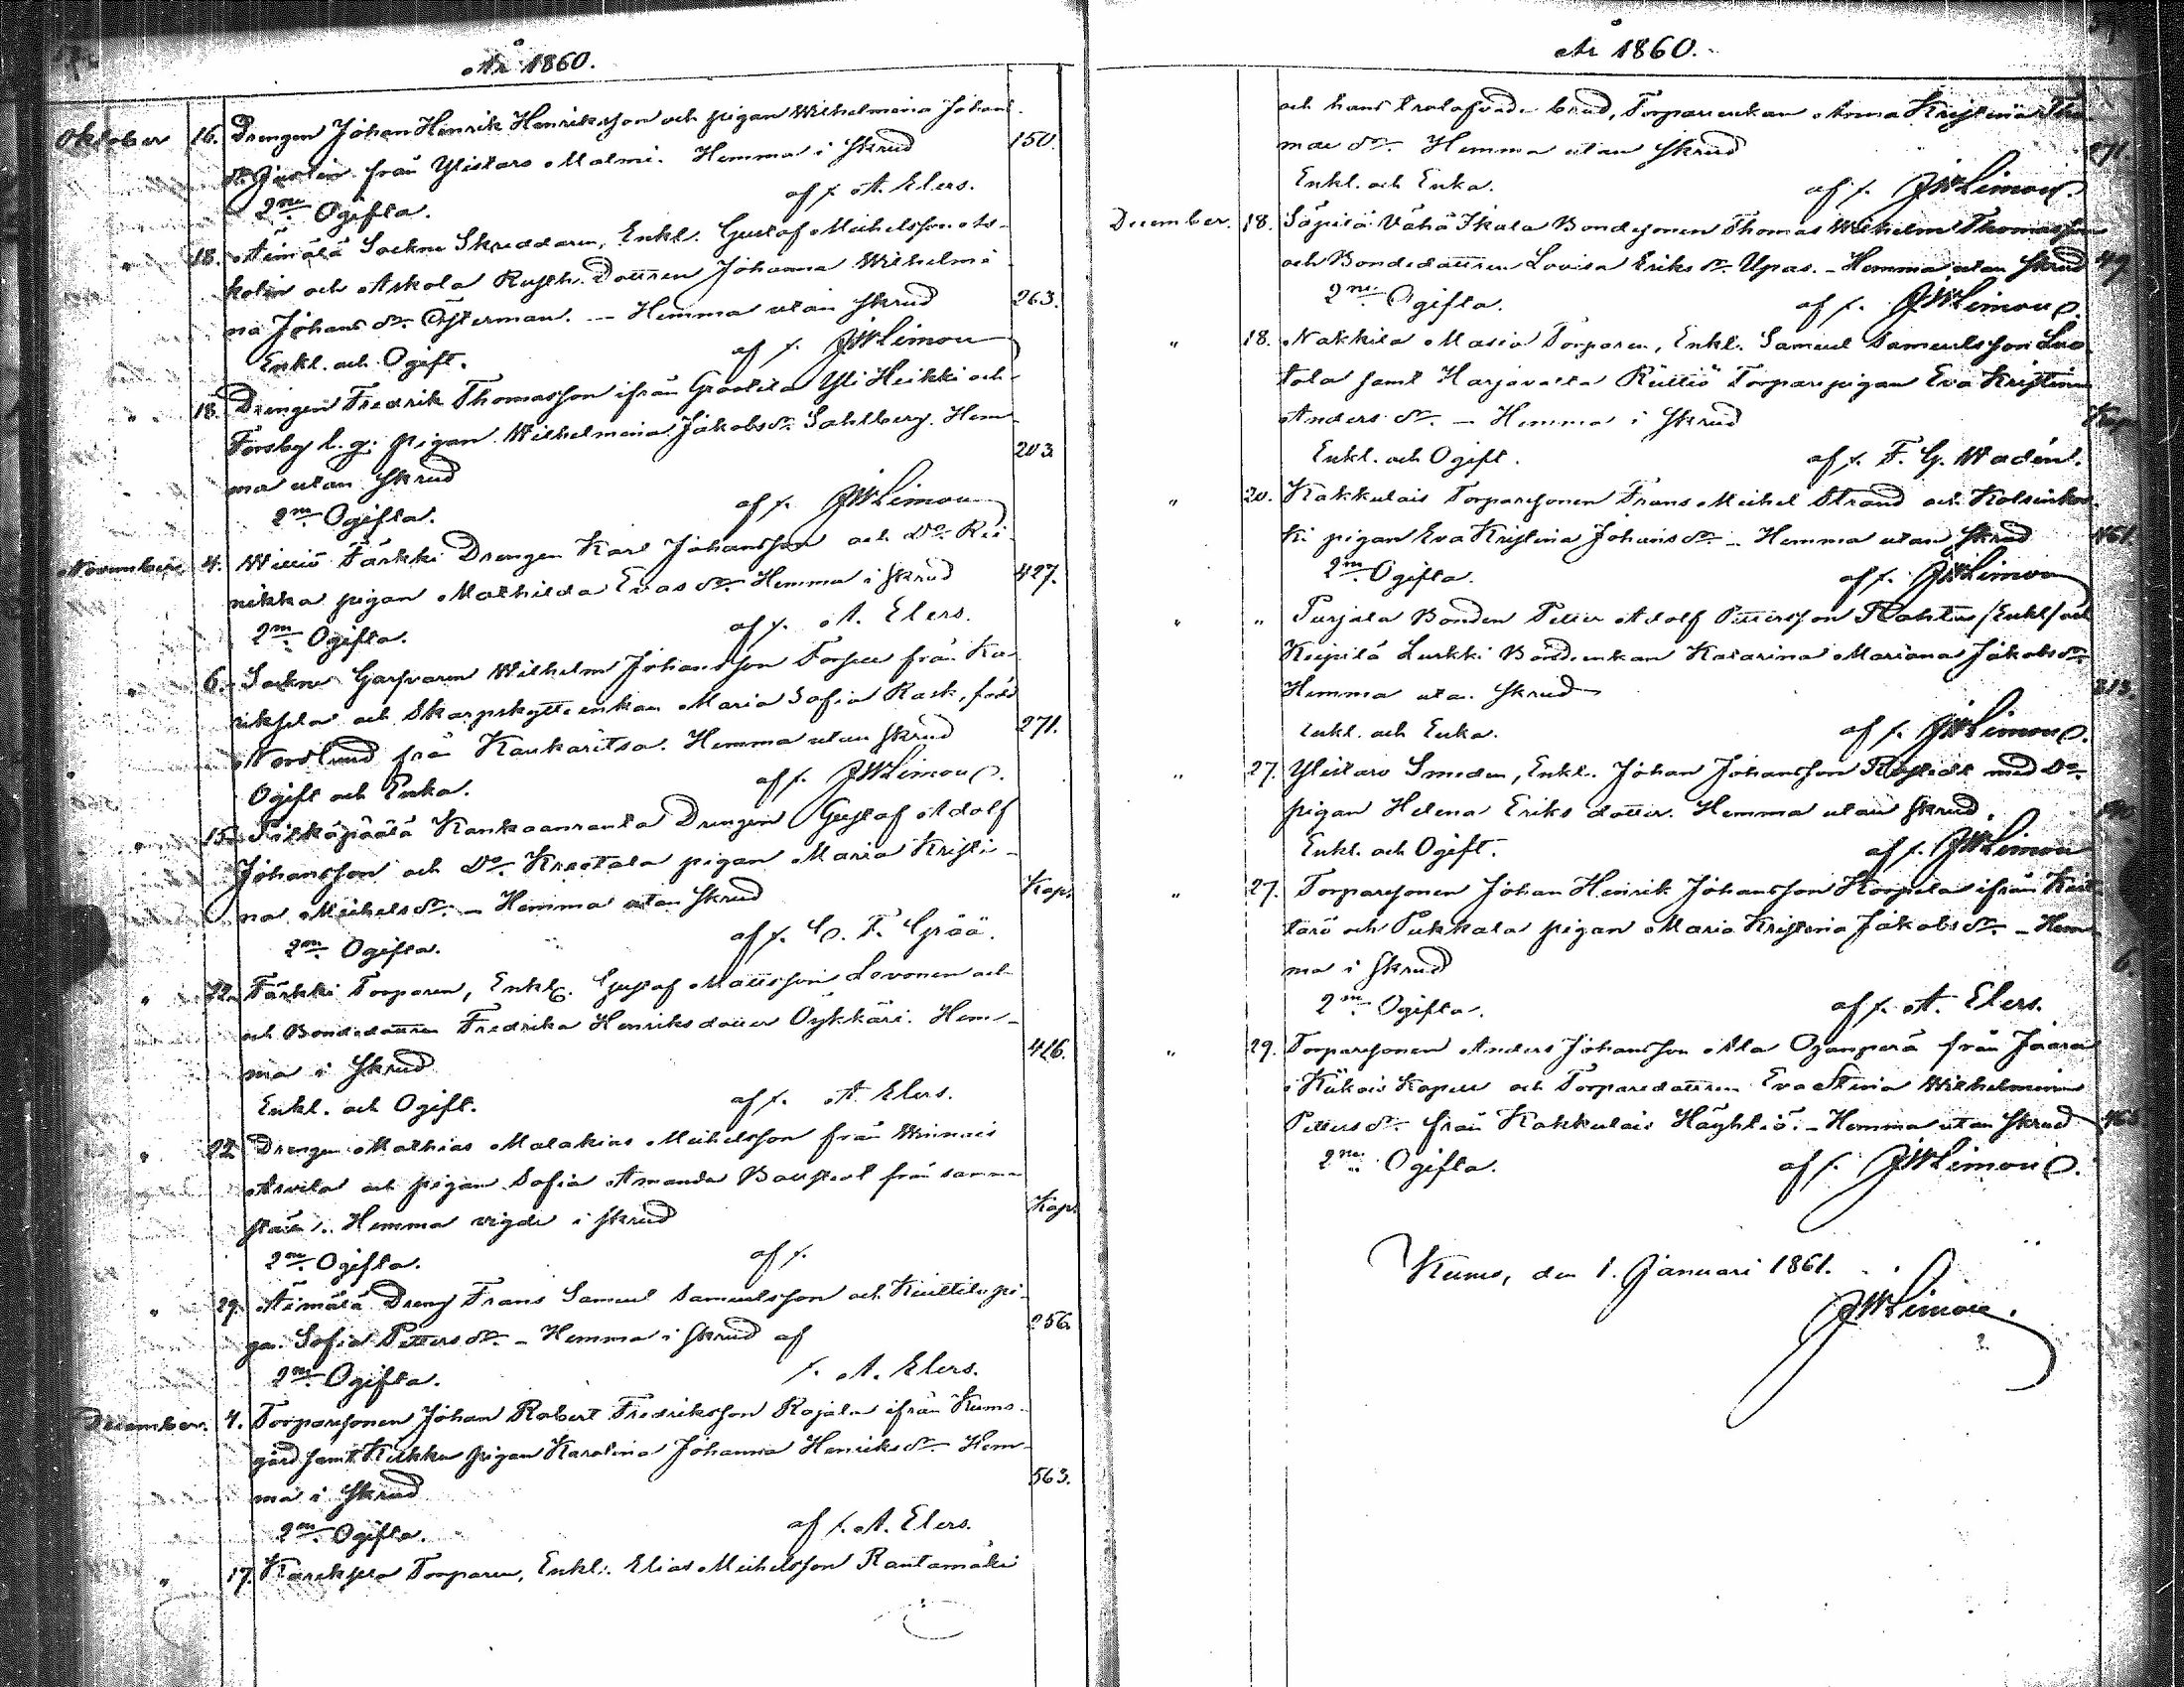 År 1860.
Oktober 16. Drengen Johan Henrik Henriksson och pigan Wilhelmina Johans
dr. Juslin från Ylistaro Malmi. Hemma i skrud 150.
2ne Ogifta. af f. A. Elers.
" 18. Äimälä Sockne Skreddaren, Enkl. Gustaf Michelsson As-
kolin och Askola Rusth. Dottren Johanna Wilhelmi
na Johans dr. Österman. - Hemma utan skrud 263.
Enkl. och Ogift. af f. JWLimon
" 18. Drengen Fredrik Thomasson ifrån Grootila Yli Heikki och
Forsby l. g. pigan Wilhelmina Jakobs dr. Sahlberg. Hem-
ma utan skrud 203.
2ne Ogifta. af f. JWLimon
November 4. Williö Tärkki Drengen Karl Johansson och Do. Rii-
nikka pigan Mathilda Evas dr. Hemma i skrud 427.
2ne Ogifta. af f. A. Elers.
" 6. Sockne Garfvaren Wilhelm Johansson från Ka-
riksela och Skarpskytteenkan Maria Sofia Rask, född
Nordlund från Kaukaritsa. Hemma utan skrud 271.
Ogift och Enka. af f. JWLimon
" 15. Pitkäpäälä Kankaanranta Drengen Gustaf Adolf
Johansson och Do. Kreetala pigan Maria Kristi-
na Michels dr. - Hemma utan skrud Kap.
2ne Ogifta. af f. C. F. Grää.
" 22. Tärkki Torparen, Enkl. Gustaf Mattsson Levonen och
och Bondedottren Fredrika Henriksdotter Öykkäri. Hem-
ma i skrud 426.
Enkl. och Ogift. af f. A. Elers.
" 22. Drengen Mathias Malakias Michelsson från Winnais
Arvela och pigan Sofia Amanda från samma
ställe. Hemma vigde i skrud Kap.
2ne Ogifta. af f.
" 29. Äimälä Dreng Frans Samuel Samuelsson och Kuittila pi-
gan Sofia Petters dr. - Hemma i skrud af 256.
2ne Ogifta. f. A. Elers.
December. 4. Torparesonen Johan Robert Fredriksson Rojala ifrån Kumo-
gård samt Kukku pigan Karolina Johanna Henriks dr. Hem-
ma i skrud 563.
2ne Ogifta. af f. A. Elers.
" 17. Kareksela Torparen, Enkl. Elias Michelsson Rautamäki
År 1860.
och hans trolofvade brud, Torpareenkan Anna Kristina Tho-
mae dr. Hemma utan skrud 271.
Enkl. och Enka. af f. JWLimon
December. 18. Säpilä Vähä Ikala Bondesonen Thomas Wilhelm Thomasson
och Bondedottren Lovisa Eriks dr. Upas. - Hemma utan skrud 49
2ne Ogifta. af f. JWLimon
" 18. Nakkila Masia Torparen, Enkl. Samuel Samuelsson
tala samt Harjavalta Torparepigan Eva Kristina
Anders dr. - Hemma i skrud Kap
Enkl. och Ogift. af f. F. G. Wadén.
" 20. Kakkulais Torparesonen Frans Michel Strand och Kolsinkos-
ki pigan Eva Kristina Johans dr. - Hemma utan skrud 461.
2ne Ogifta. af f. JWLimon
" " Purjala Bonden Petter Adolf Pettersson Rohtus /Enkl/ och
Keipilä Lurkki Bondeenkan Katarina Mariana Jakobs dr.
Hemma utan skrud 313.
Enkl. och Enka. af f. JWLimon
" 27. Ylistaro Smeden, Enkl. Johan Johansson med Do.
pigan Helena Eriks dotter. Hemma utan skrud.
Enkl. och Ogift. af f. JWLimon
" 27. Torparesonen Johan Henrik Johansson Korpela ifrån
tarö och Pukkala pigan Maria Kristina Jakobs dr. - Hem-
ma i skrud 6.
2ne Ogifta. af f. A. Elers.
" 29. Torparesonen Anders Johansson Ala Ojanperä från Jaara
i Kiikois Kapell och Torparedottren Eva Stina Wilhelmina
Petters dr. från Kakkulais Häyhtiö. - Hemma utan skrud 463
2ne Ogifta. af f. JWLimon
Kumo, den 1. Januari 1861.
JWLimon.